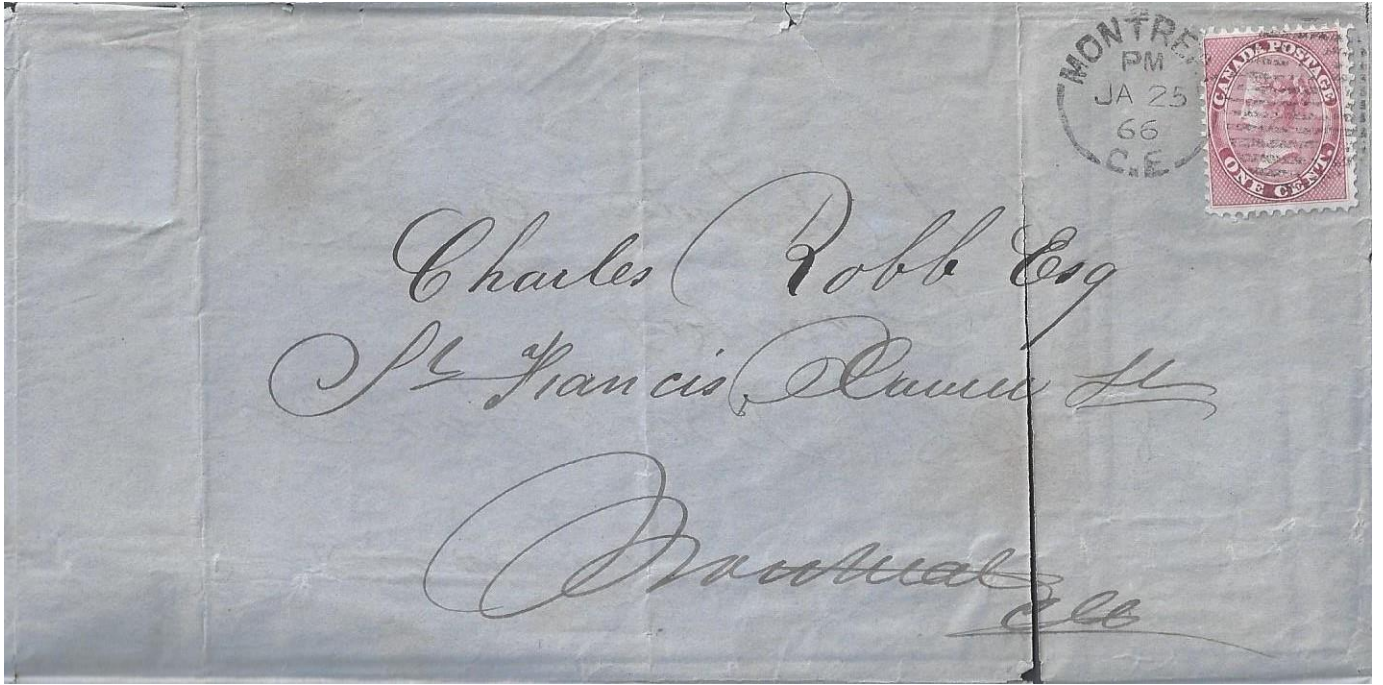 MONTRE
PM
JA 25
66
C.E
CANADA POSTAGE
ONE CENT.
Charles Robb Esq
St Francis Xavier St
Montreal